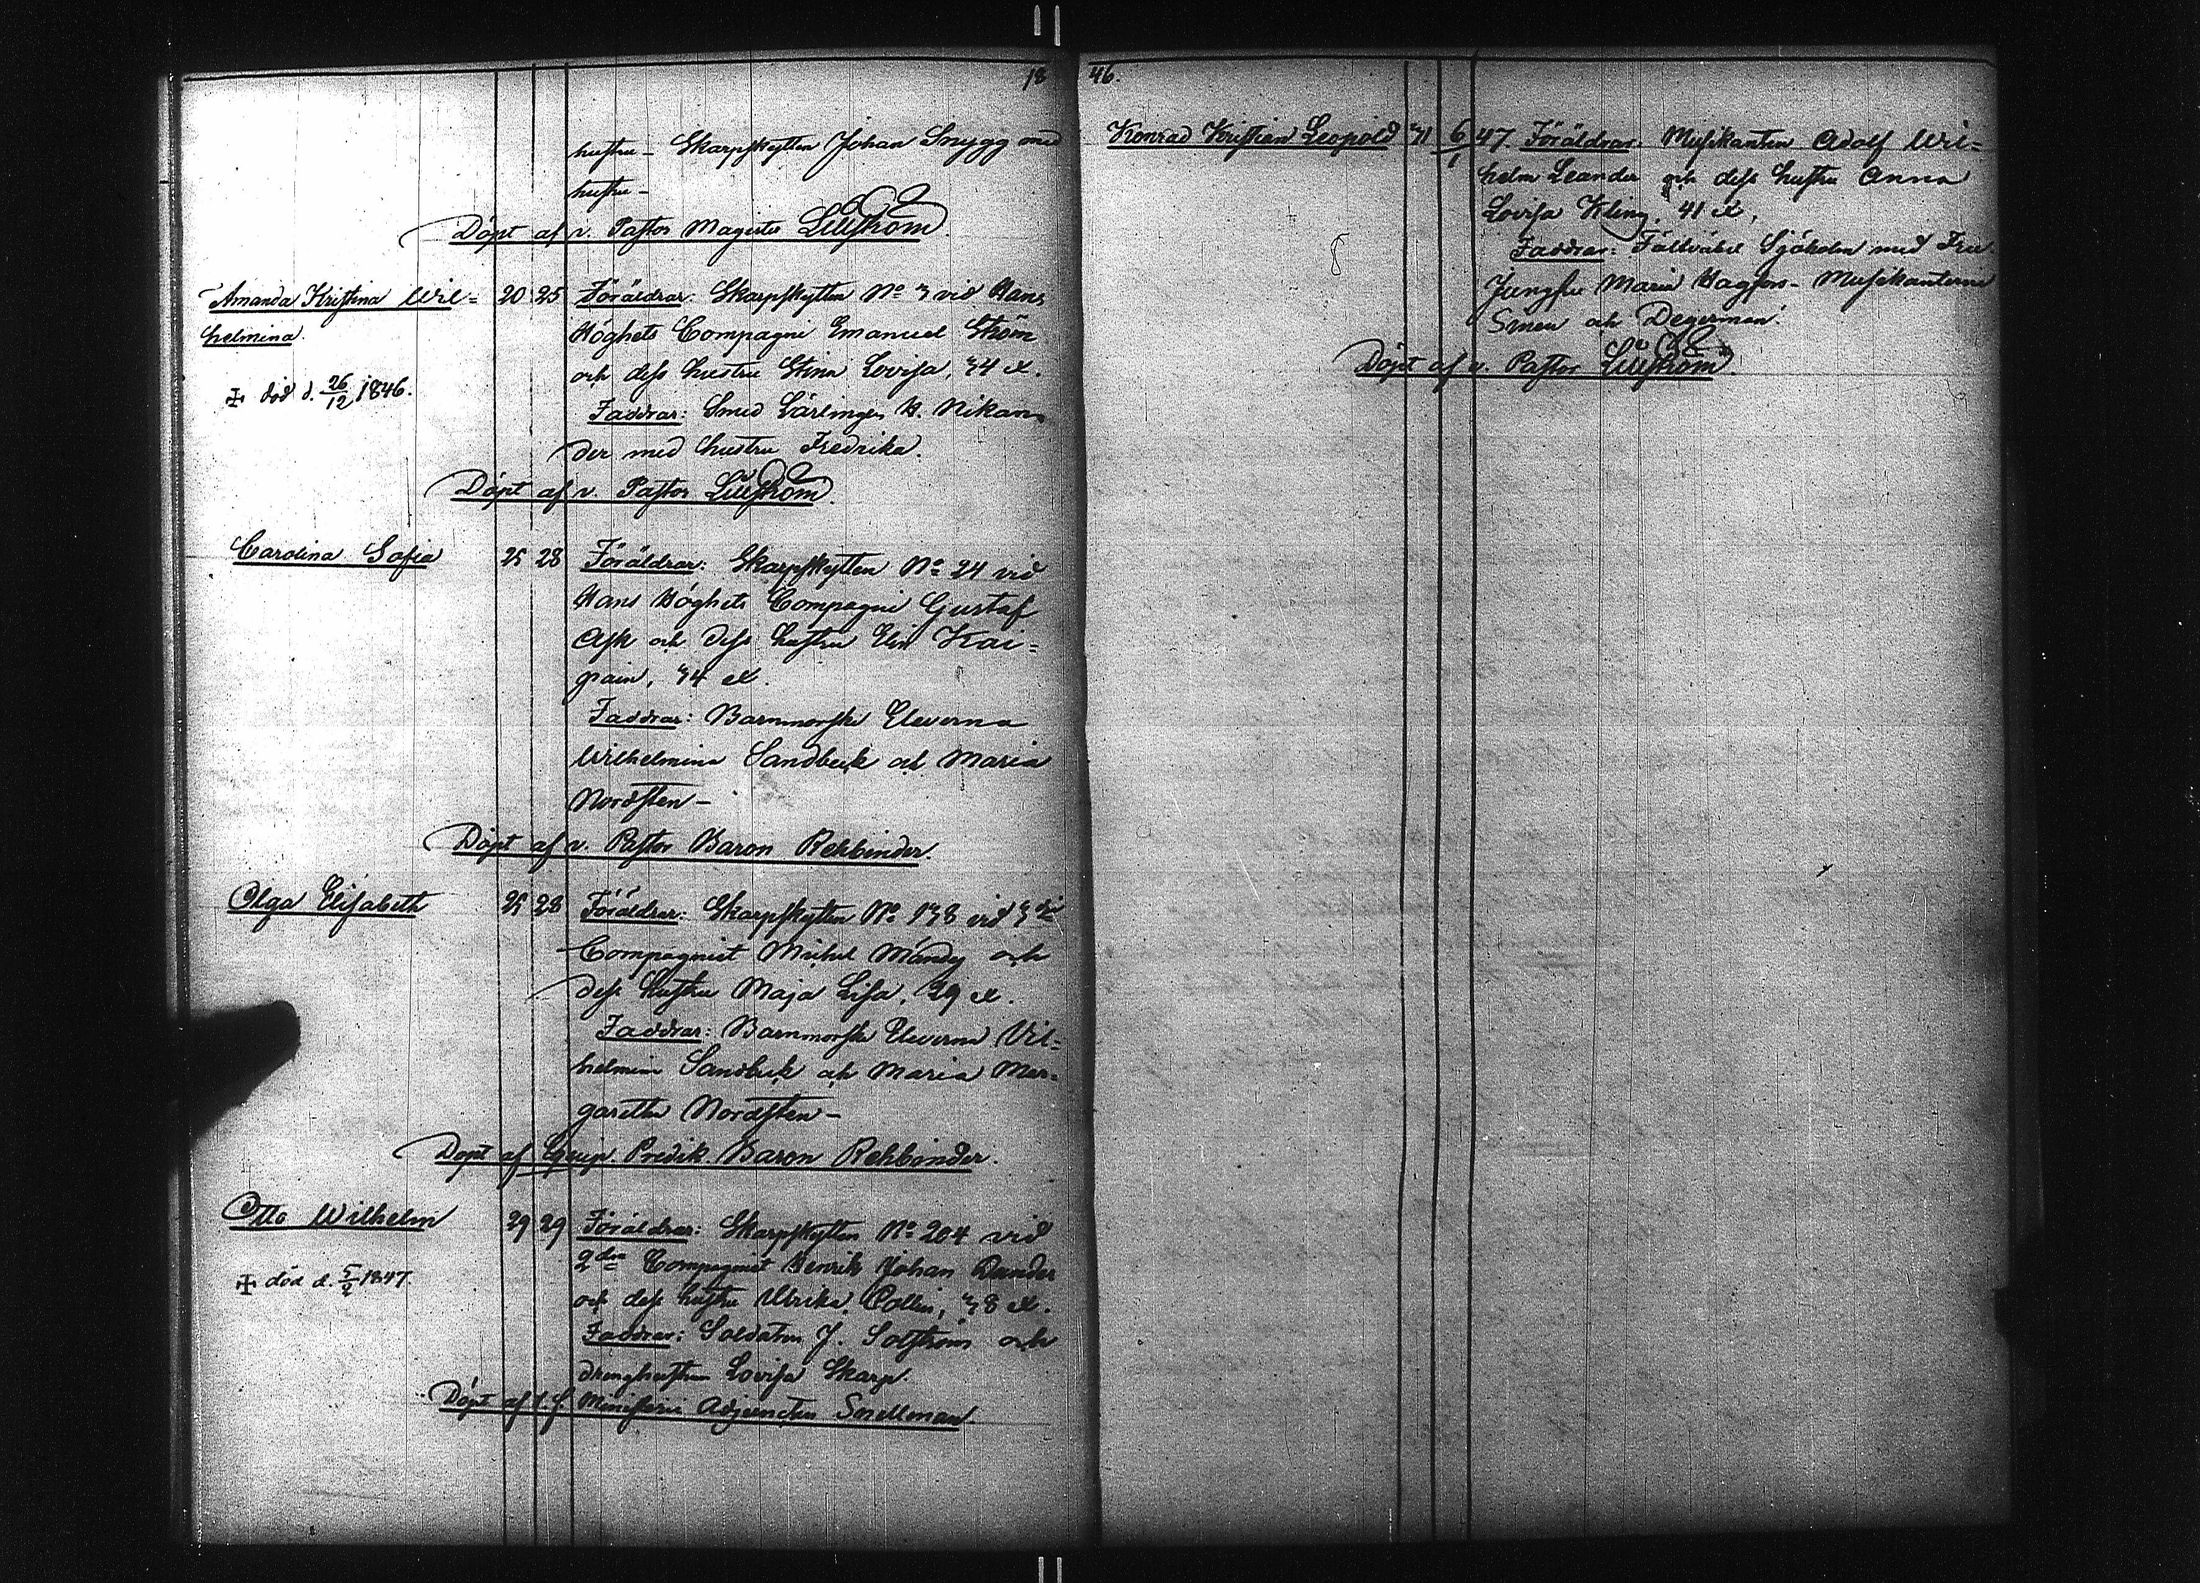 1846.
hustru – Skarpskytten Johan Snygg med
hustru –
Döpt af v. Pastor Magister Lilljström.
Amanda Kristina Wil=
helmina.
20 25 Föräldrar: Skarpskytten No 3 vid Hans
Höghets Compagni Emanuel Ström
och dess hustru Stina Lovisa, 34 år.
Faddrar: Smed Lärlingen H. Nikan=
der med hustru Fredrika.
+ död d. 26/12 1846.
Döpt af v. Pastor Lilljström.
Carolina Sofia
25 28 Föräldrar: Skarpskytten No 24 vid
Hans Höghets Compagni Gustaf
Ask och dess hustru Elin Kai=
pain, 34 år.
Faddrar: Barnmorske Eleverna
Wilhelmina Sandbeck och Maria
Nordsten –
Döpt af v. Pastor Baron Rehbinder.
Olga Elisabeth
25 28 Föräldrar: Skarpskytten No 138 vid 3dje
Compagniet Michel Mándy och
dess hustru Maja Lisa, 29 år.
Faddrar: Barnmorske Eleverna Vil=
helmina Sandbeck och Maria Mar=
garetha Nordsten –
Döpt af Predik. Baron Rehbinder.
Otto Wilhelm
29 29 Föräldrar: Skarpskytten No 204 vid
2dra Compagniet Henrik Johan Dander
och dess hustru Ulrika Collin, 38 år.
Faddrar: Soldaten J. Solström och
drenghustrun Lovisa Skarp.
+ död d. 5/2 1847.
Döpt af t. f. Ministerii Adjuncten Snellman
Konrad Kristian Leopold 31 6/1 47. Föräldrar: Musikanten Adolf Wil=
helm Leander och dess hustru Anna
Lovisa Kling, 41 år,
Faddrar: Fältväbel Sjöholm med Fru
Jungfru Maria Hagfors – Musikanterne
Sinen och Degerman.
Döpt af v. Pastor Lilljström